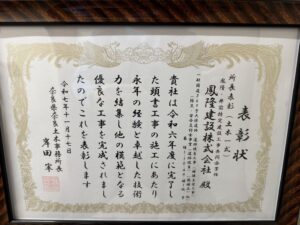 表彰状
所長表彰（土木一式）
鳳隆建設株式会社 殿
貴社は令和六年度に完了し
た頭書工事の施工にあたり
永年の経験と卓越した技術
力を結集し他の模範となる
優良な工事を完成されまし
たのでこれを表彰します
令和七年十一月十七日
奈良県奈良土木事務所長